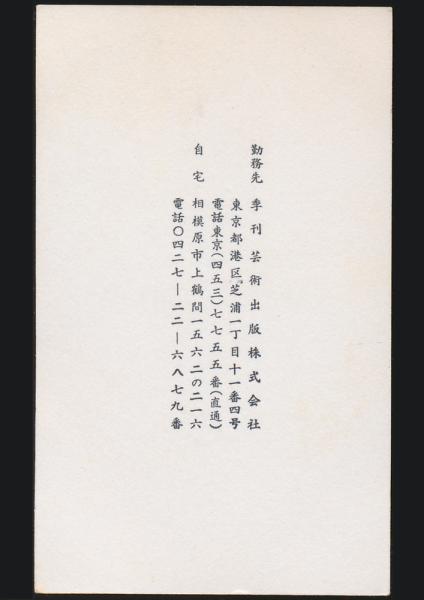 勤務先 季刊芸術出版株式会社
東京都港区芝浦一丁目十一番四号
電話東京(四五三)七七五五番(直通)
自宅 相模原市上鶴間一五六二の二一六
電話〇四二七―二二―六八七九番